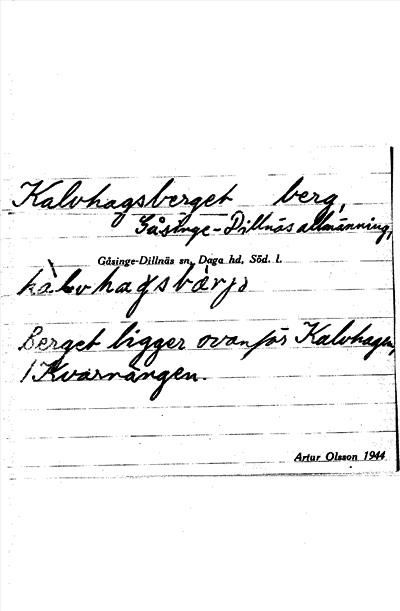 Kalvhagsberget berg,
Gåsinge-Dillnäs allmänning,
Gåsinge-Dillnäs sn, Daga hd, Söd. l.
Berget ligger ovanför Kalvhagen,
i Kvarnängen.
Artur Olsson 1944